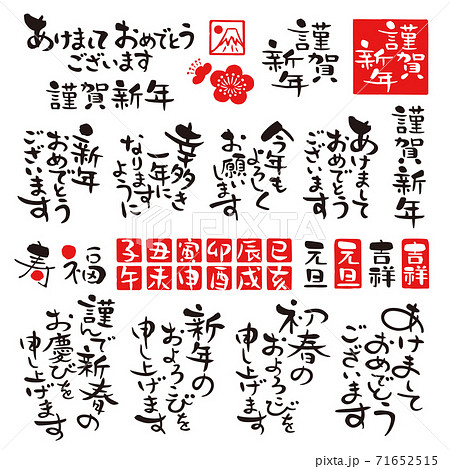 あけまして おめでとう
ございます
謹賀新年
謹賀
新年
謹賀
新年
謹賀新年
あけまして
おめでとう
ございます
今年も
よろしく
お願い
します
幸多き
一年に
なります
ように
新年
おめでとう
ございます
寿
福
子丑寅卯辰巳
午未申酉戌亥
元旦
元旦
吉祥
吉祥
あけまして
おめでとう
ございます
初春の
およろこびを
申し上げます
新年の
およろこびを
申し上げます
謹んで新春の
お慶びを
申し上げます
PIXTA
pixta.jp - 71652515